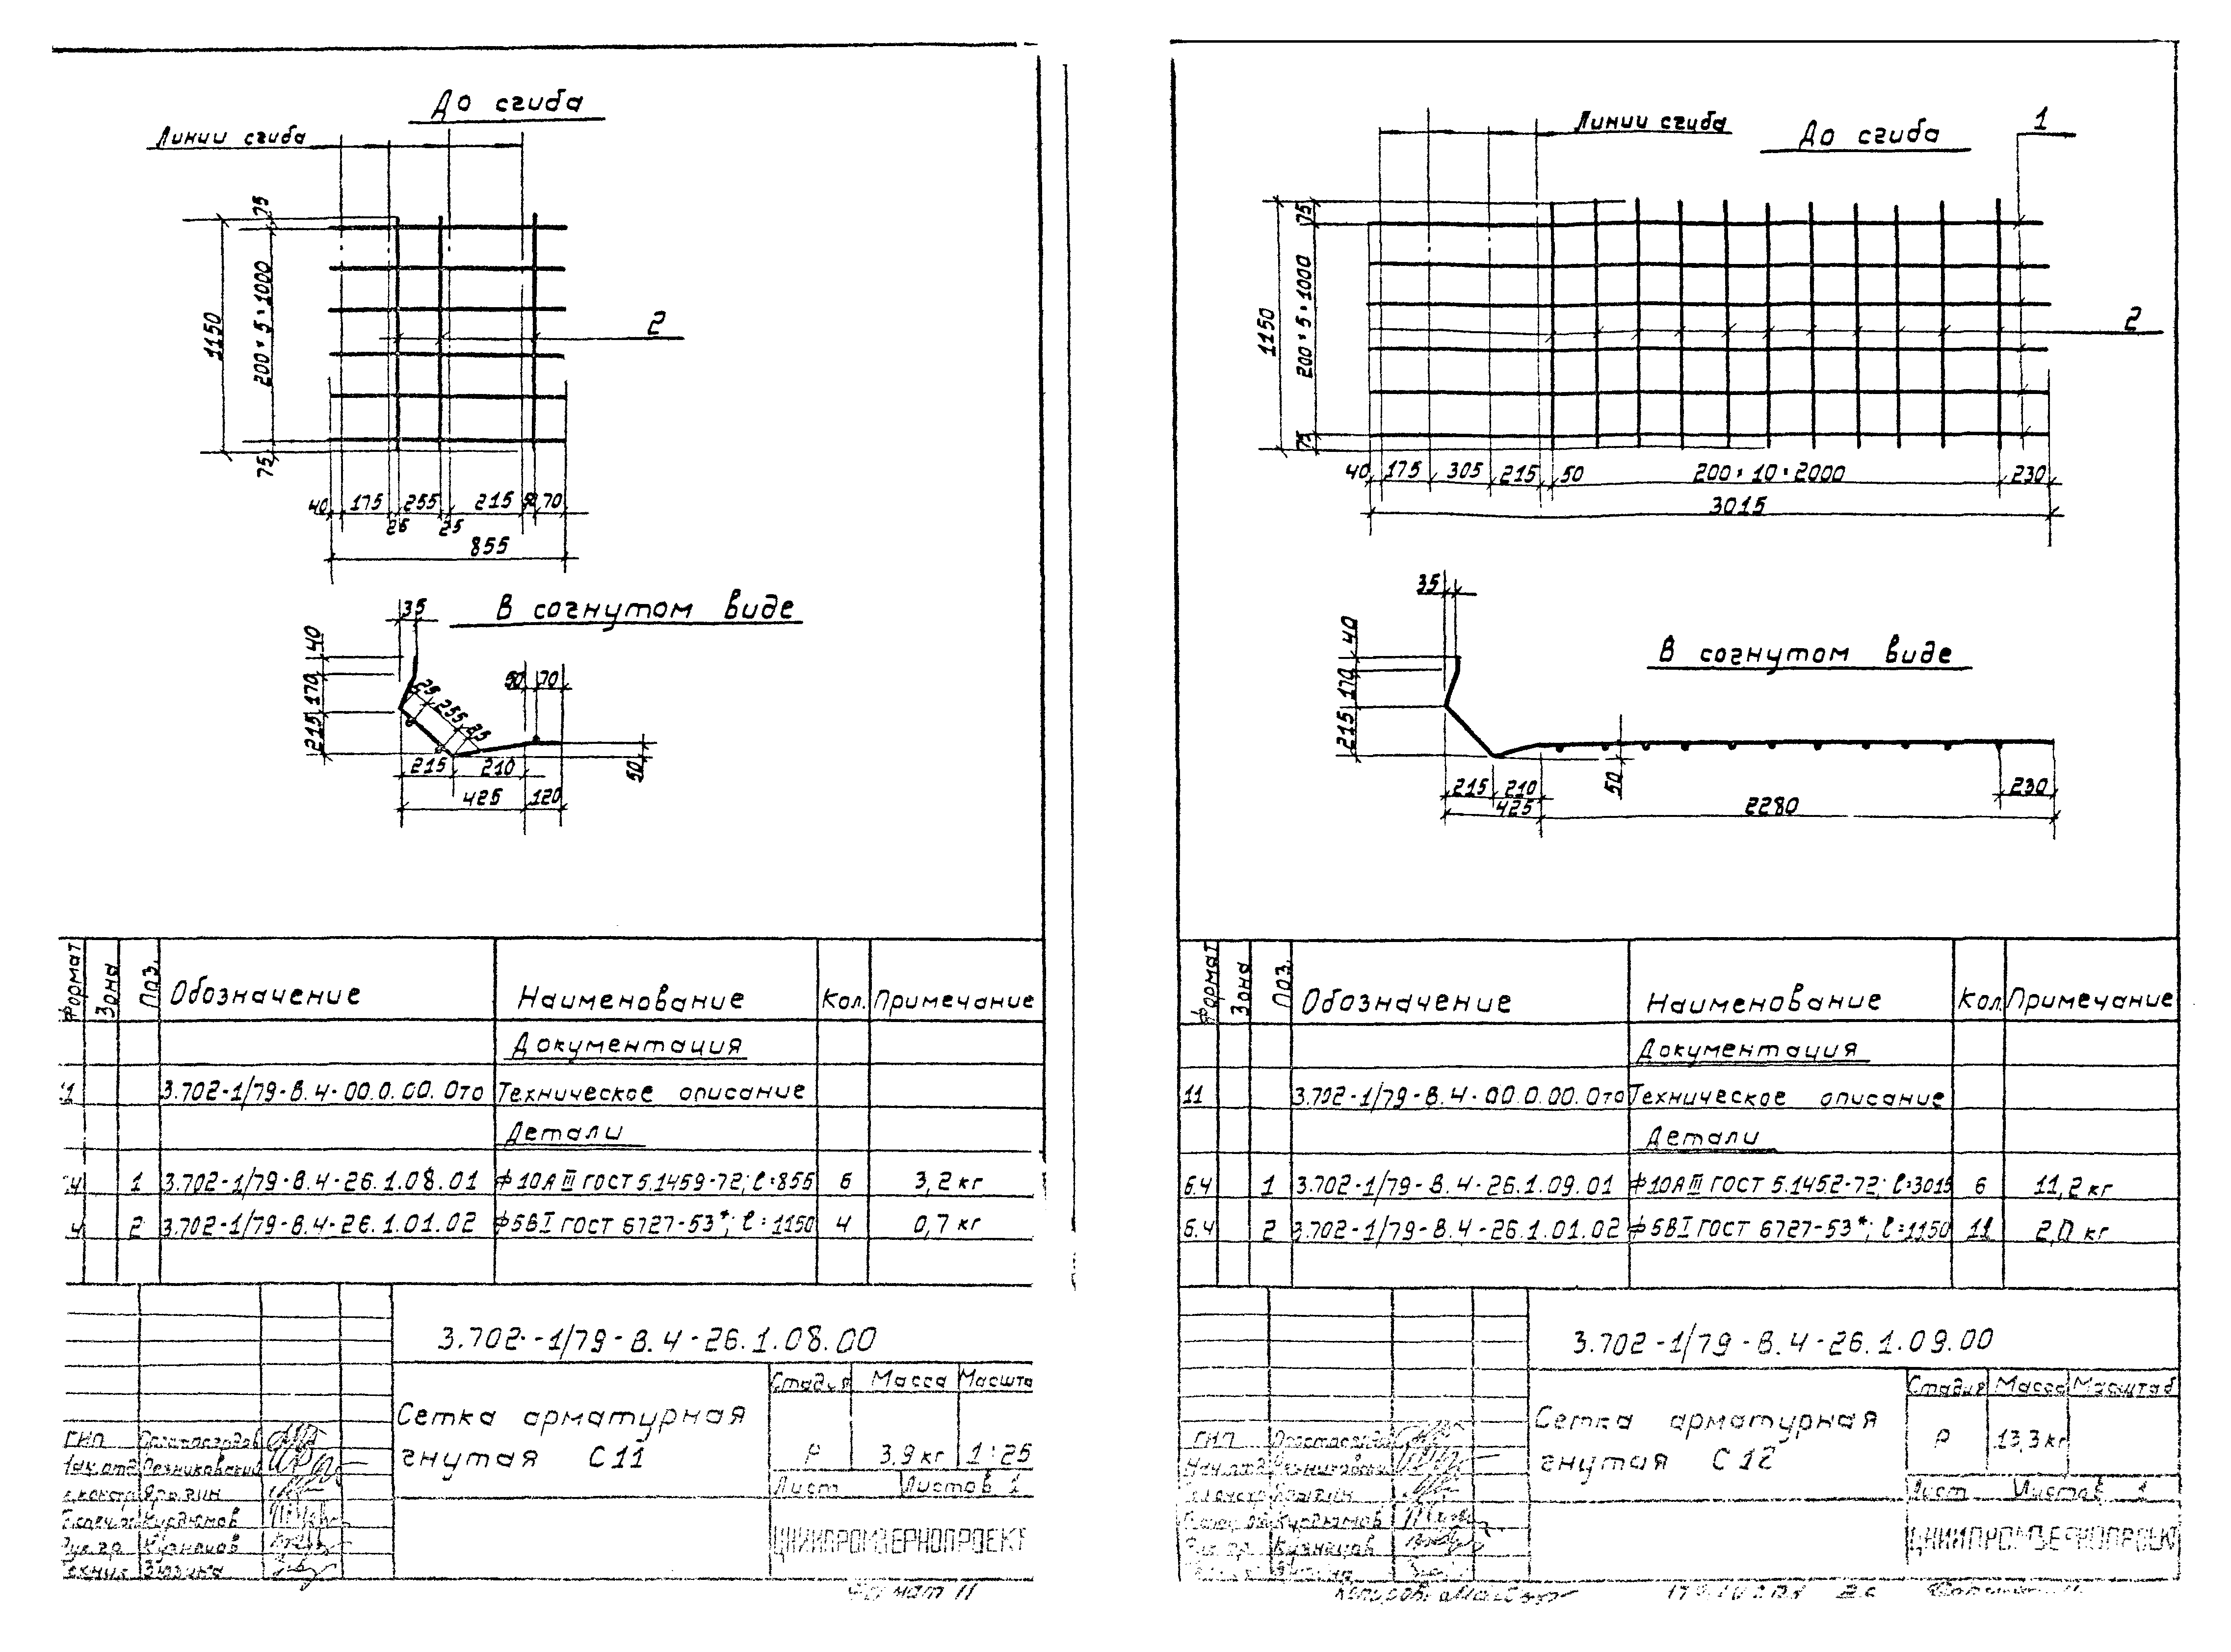 До сгиба
Линии сгиба
75
1150
200×5=1000
75
2
40 175 255 215 50 70
25 25
855
В согнутом виде
35
40
170
215
25 255 25
50 70
215 210
50
425 120
Формат Зона Поз. Обозначение Наименование Кол. Примечание
Документация
11 3.702-1/79-В.4-00.0.00.0то Техническое описание
Детали
4 1 3.702-1/79-В.4-26.1.08.01 ф10АIII ГОСТ 5.1459-72; ℓ=855 6 3,2 кг
4 2 3.702-1/79-В.4-26.1.01.02 ф5ВI ГОСТ 6727-53*; ℓ=1150 4 0,7 кг
3.702-1/79-В.4-26.1.08.00
Сетка арматурная
гнутая С11
Стадия Масса Масшта
Р 3,9 кг 1:25
Лист Листов 1
ЦНИИПРОМЗЕРНОПРОЕКТ
ГИП
Нач.отд. Резниковский
Курдюмов
Рук.гр. Кузнецов
Зюзина
Формат 11
Линии сгиба
До сгиба
1
75
1150
200×5=1000
75
2
40 175 305 215 50 200×10=2000 230
3015
В согнутом виде
35
40
170
215
215 210
425
50
2280
230
Формат Зона Поз. Обозначение Наименование Кол. Примечание
Документация
11 3.702-1/79-В.4-00.0.00.0то Техническое описание
Детали
Б.4 1 3.702-1/79-В.4-26.1.09.01 ф10АIII ГОСТ 5.1452-72; ℓ=3015 6 11,2 кг
Б.4 2 3.702-1/79-В.4-26.1.01.02 ф5ВI ГОСТ 6727-53*; ℓ=1150 11 2,0 кг
3.702-1/79-В.4-26.1.09.00
Сетка арматурная
гнутая С12
Стадия Масса Масштаб
Р 13,3 кг
Лист Листов 1
ЦНИИПРОМЗЕРНОПРОЕКТ
ГИП
Нач.отд.
Курдюмов
Рук.гр. Кузнецов